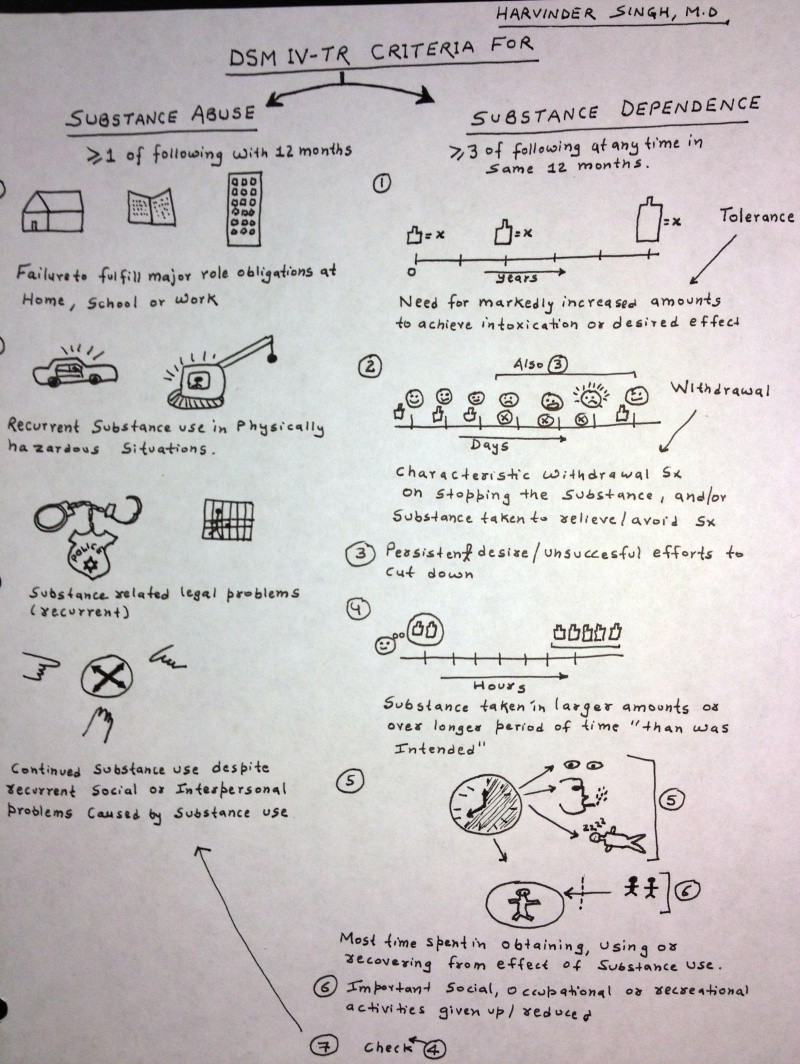 HARVINDER SINGH, M.D
DSM IV-TR CRITERIA FOR
SUBSTANCE ABUSE
≥1 of following with 12 months
Failure to fulfill major role obligations at
Home, School or Work
Recurrent Substance use in Physically
hazardous Situations.
POLICE
Substance related legal problems
(recurrent)
Continued Substance use despite
recurrent Social or Interpersonal
problems Caused by Substance use
SUBSTANCE DEPENDENCE
≥3 of following at any time in
Same 12 months.
①
=x
=x
=x
Tolerance
0
years
Need for markedly increased amounts
to achieve intoxication or desired effect
②
Also ③
Withdrawal
Days
Characteristic withdrawal Sx
on stopping the Substance, and/or
Substance taken to relieve/avoid Sx
③ Persistent desire/unsuccesful efforts to
cut down
④
Hours
Substance taken in larger amounts or
over longer period of time "than was
Intended"
⑤
zzzz
⑤
⑥
Most time spent in obtaining, using or
recovering from effect of Substance use.
⑥ Important Social, Occupational or recreational
activities given up/reduced
⑦ Check ④